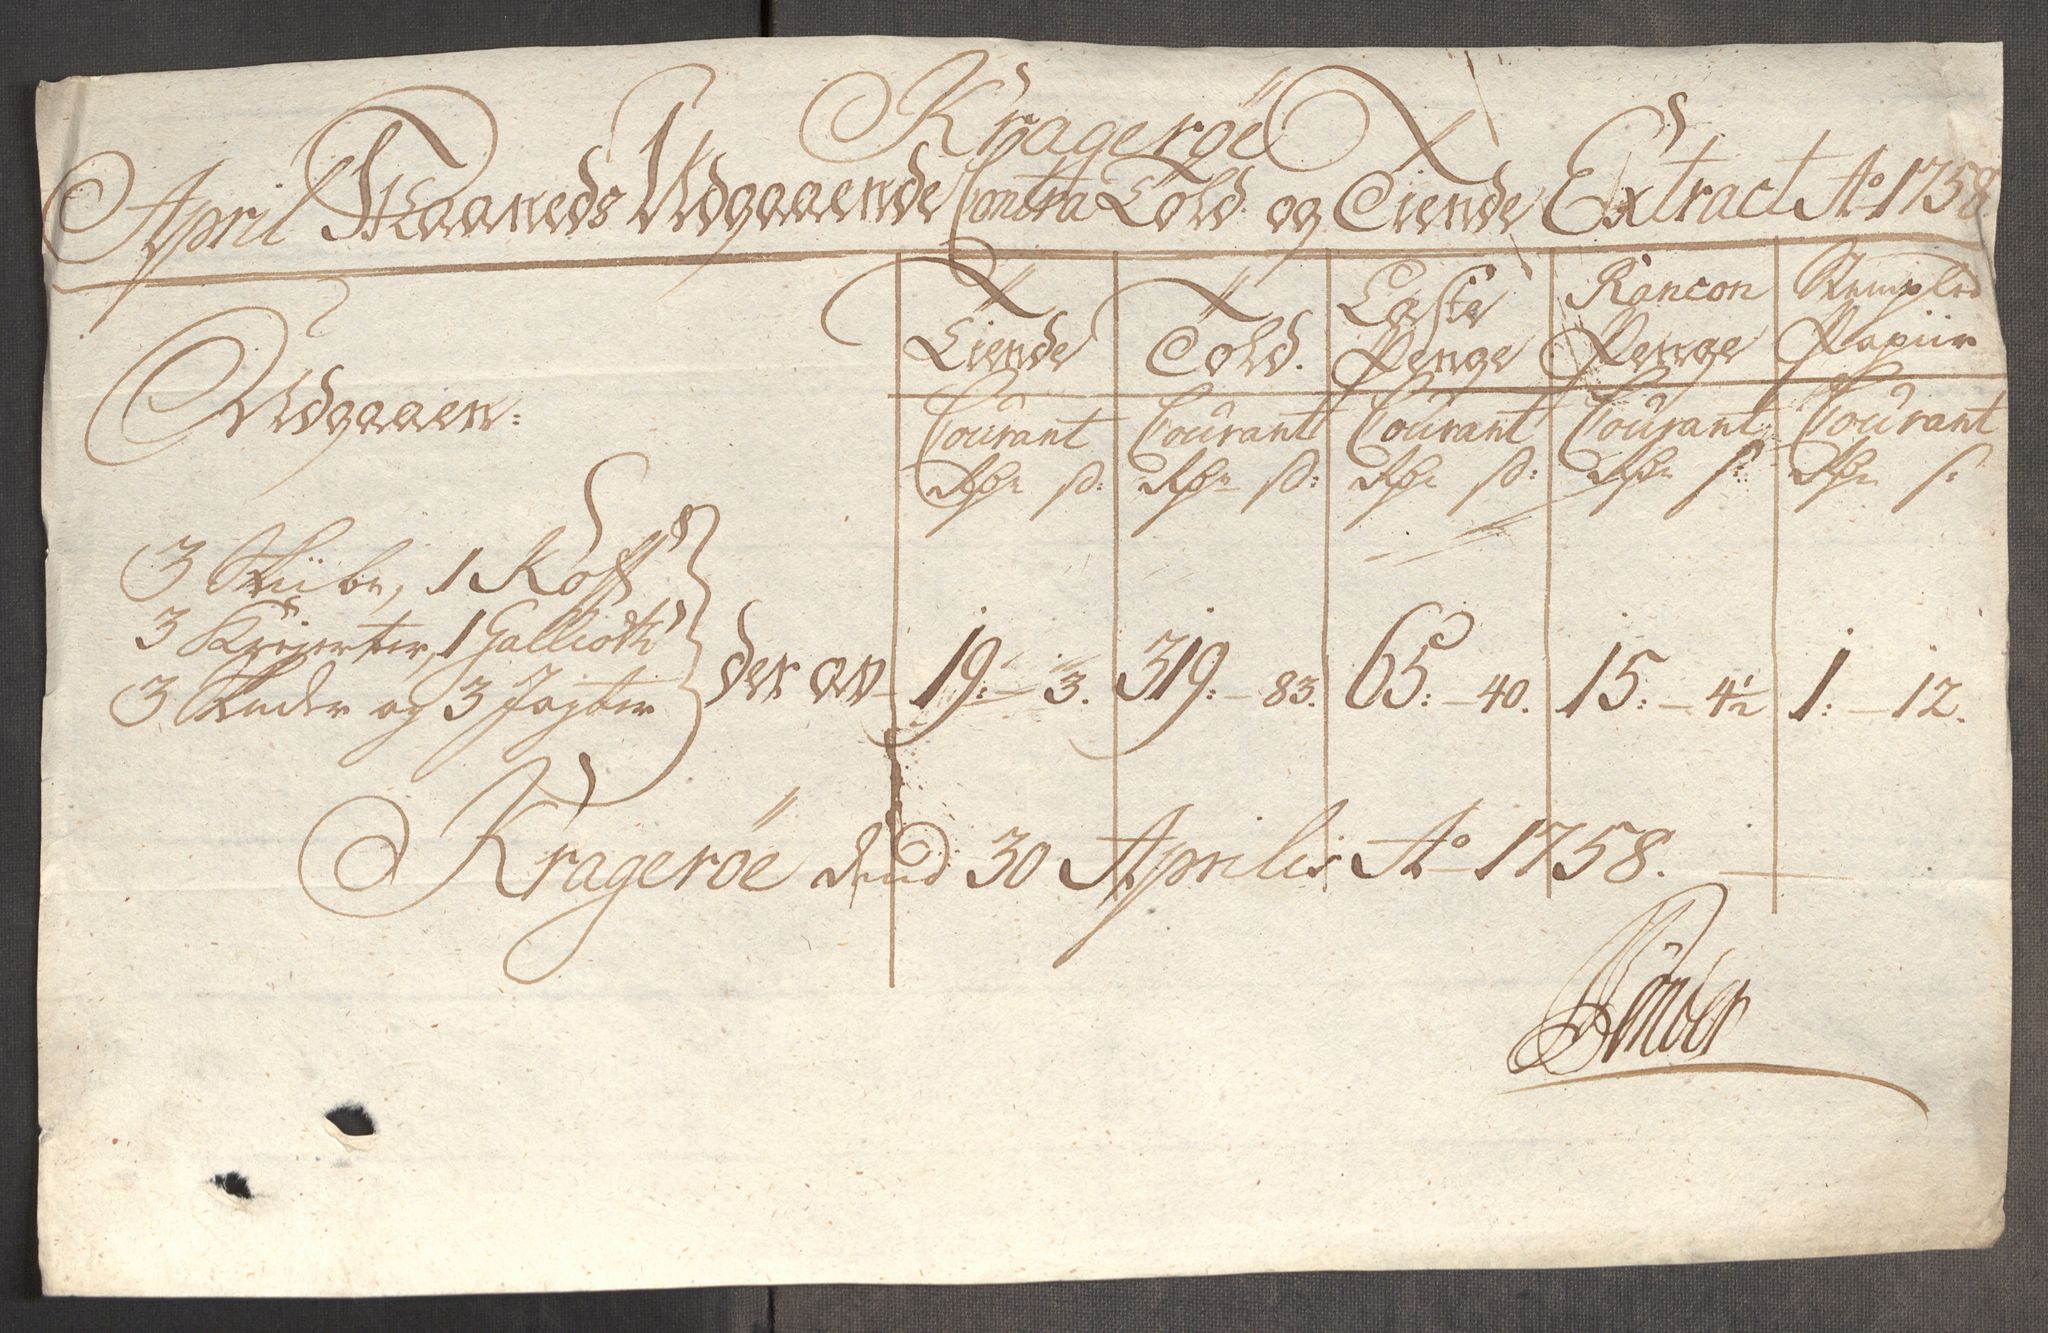 Kragerøe
April Maaneds Udgaaende Contra Told og Tiende Extract Ao 1758.
Tiende Told. Laste Penge Rancon Penge Stempled Papiir
Udgaaen:
Courant Courant Courant Courant Courant
Rdr s: Rdr s: Rdr s: Rdr s: Rdr s:
3 Skibe, 1 Koff
3 Kreierter, 1 Gallioth
3 Skuder og 3 Jagter
der av 19:-3. 319:-83. 65:-40. 15:-4½ 1:-12.
Kragerøe dend 30 Aprilis Ao 1758.